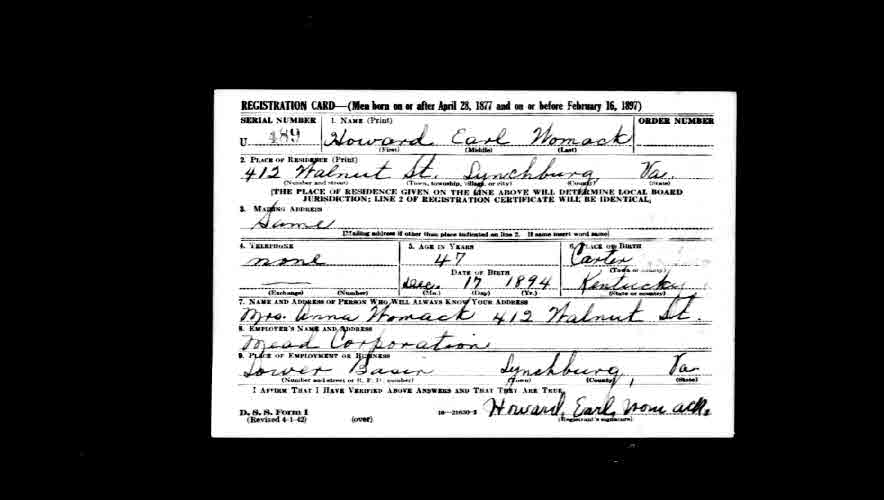 REGISTRATION CARD—(Men born on or after April 28, 1877 and on or before February 16, 1897)
SERIAL NUMBER 1. NAME (Print) ORDER NUMBER
U 489 Howard Earl Womack
(First) (Middle) (Last)
2. PLACE OF RESIDENCE (Print)
412 Walnut St. Lynchburg Va.
(Number and street) (Town, township, village, or city) (County) (State)
[THE PLACE OF RESIDENCE GIVEN ON THE LINE ABOVE WILL DETERMINE LOCAL BOARD
JURISDICTION; LINE 2 OF REGISTRATION CERTIFICATE WILL BE IDENTICAL]
3. MAILING ADDRESS
Same
[Mailing address if other than place indicated on line 2. If same insert word same]
4. TELEPHONE 5. AGE IN YEARS 6. PLACE OF BIRTH
none 47 Carter
DATE OF BIRTH (Town or county)
Dec. 17 1894 Kentucky
(Exchange) (Number) (Mo.) (Day) (Yr.) (State or country)
7. NAME AND ADDRESS OF PERSON WHO WILL ALWAYS KNOW YOUR ADDRESS
Mrs. Anna Womack 412 Walnut St.
8. EMPLOYER'S NAME AND ADDRESS
Mead Corporation
9. PLACE OF EMPLOYMENT OR BUSINESS
Lower Basin Lynchburg, Va.
(Number and street or R. F. D. number) (Town) (County) (State)
I AFFIRM THAT I HAVE VERIFIED ABOVE ANSWERS AND THAT THEY ARE TRUE.
D. S. S. Form 1 16—21630-2 Howard, Earl, Womack.
(Revised 4-1-42) (over) (Registrant's signature)